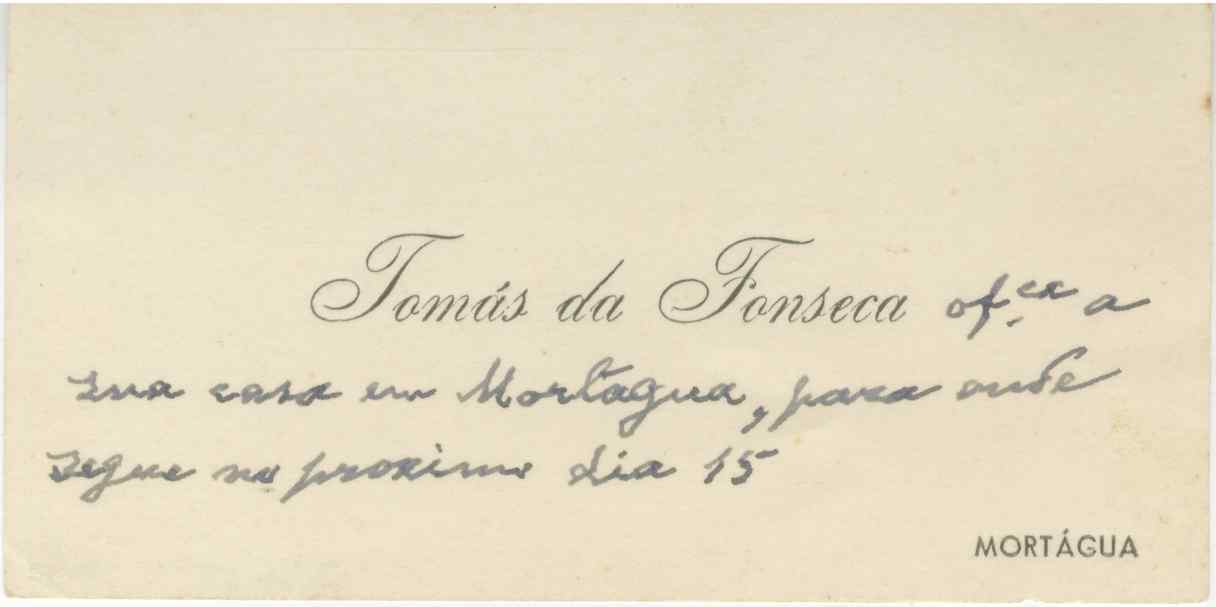 Tomás da Fonseca of.ce a
sua casa em Mortagua, para onde
segue no proximo dia 15
MORTÁGUA